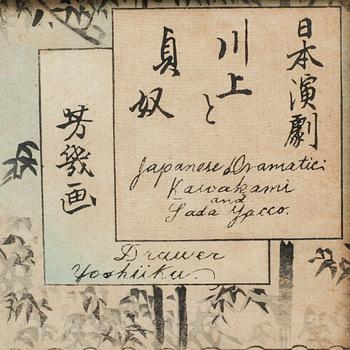 日本演劇
川上と
貞奴
Japanese Dramatic:
Kawakami
and
Sada Yacco.
芳幾画
Drawer
Yoshiiku.